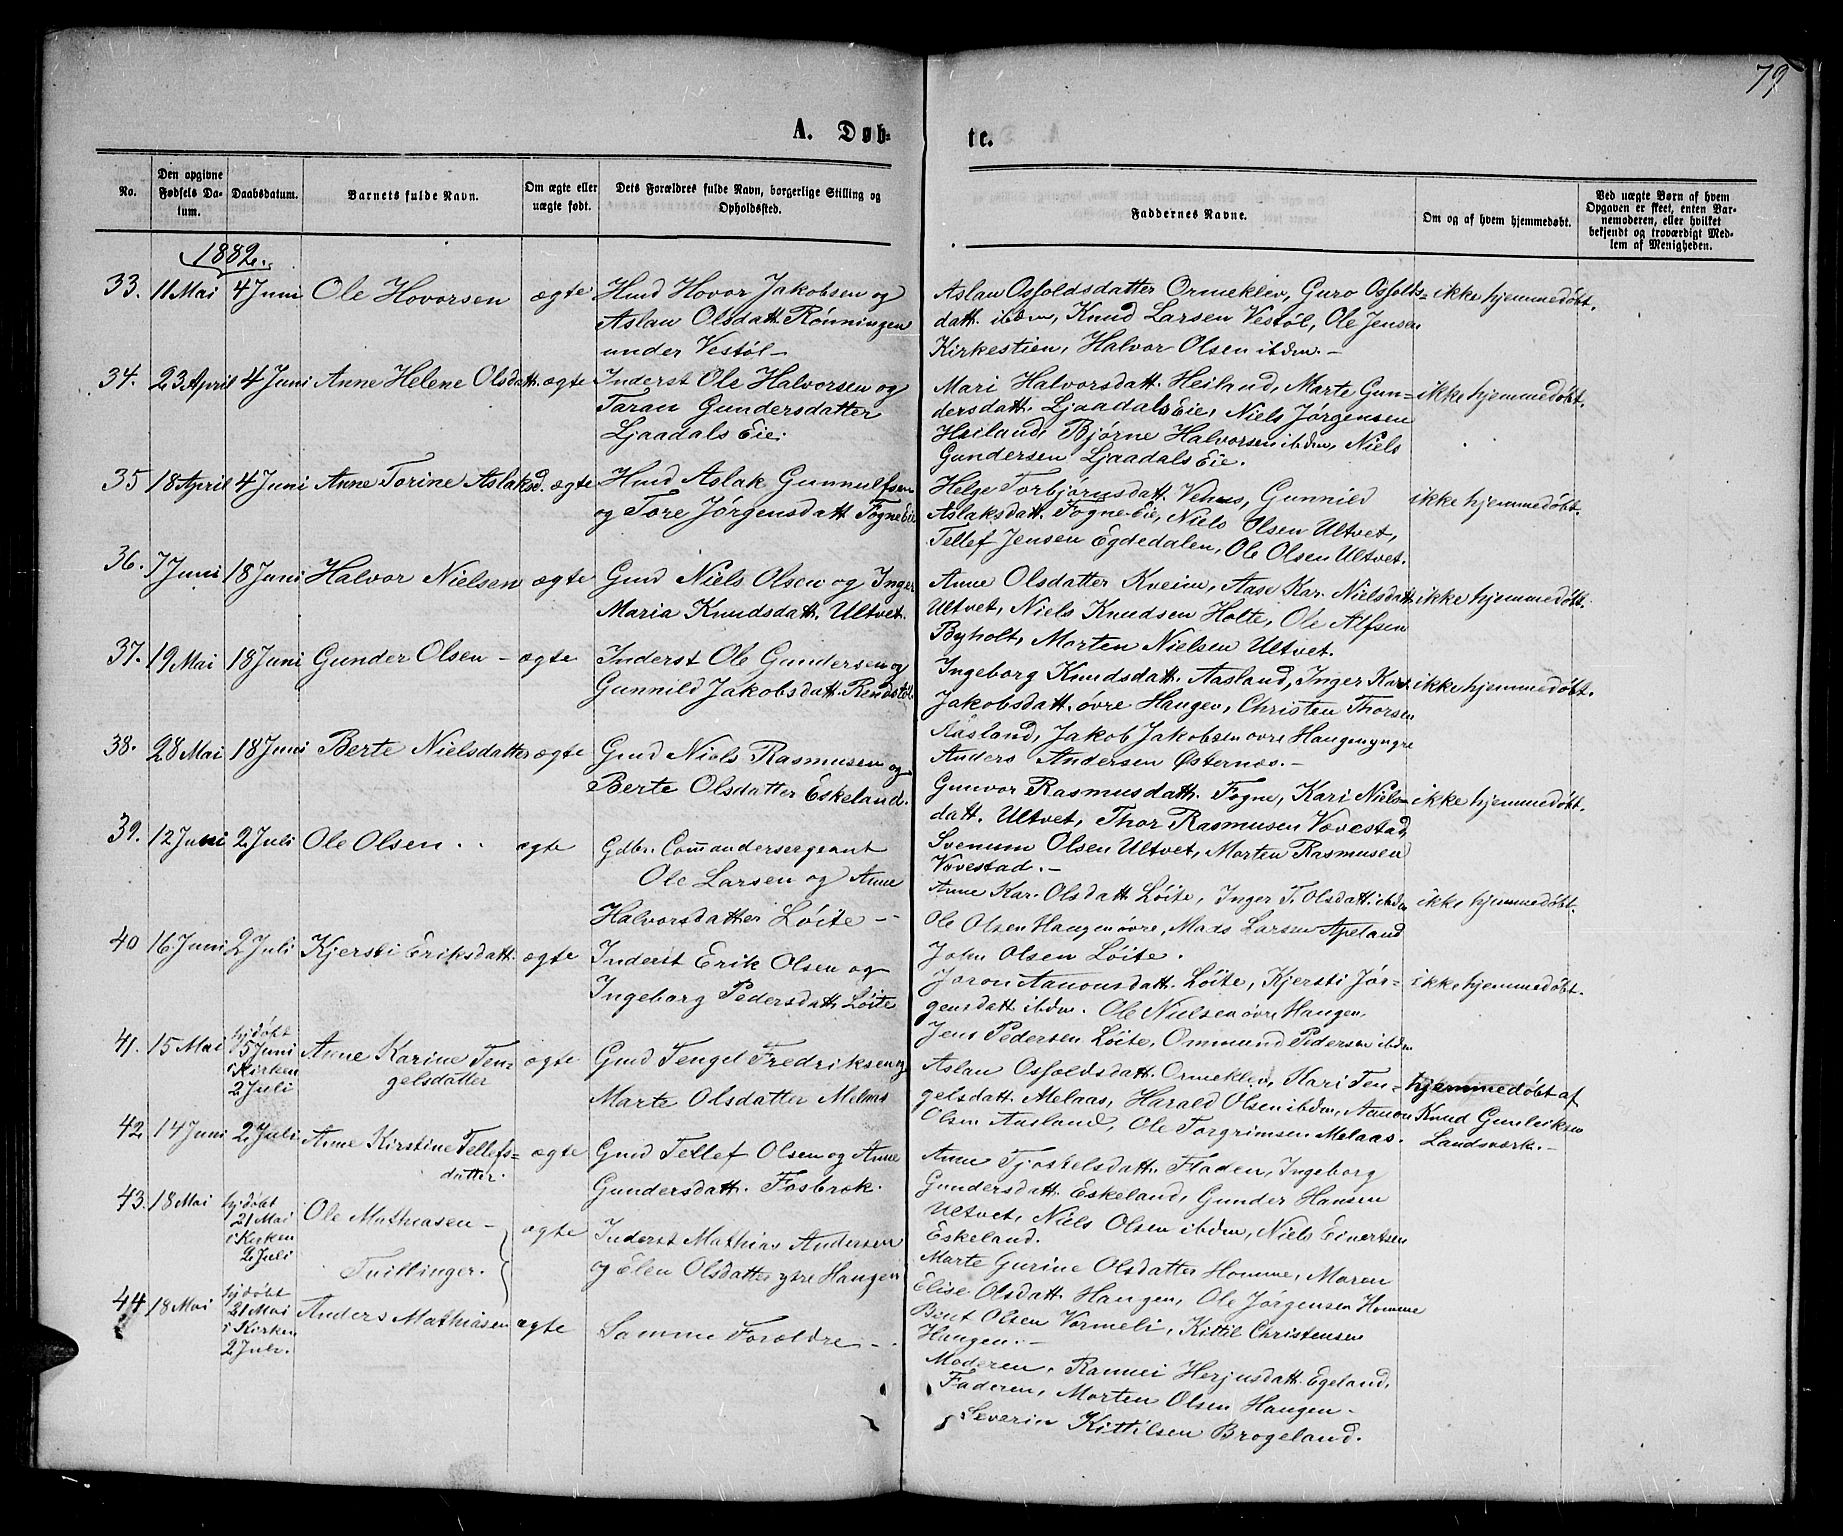 79
A. Døb-
te.
No.
Den opgivne Fødsels Da-
tum.
Daabsdatum.
Barnets fulde Navn.
Om ægte eller
uægte født.
Dets Forældres fulde Navn, borgerlige Stilling og
Opholdssted.
Faddernes Navne.
Om og af hvem hjemmedøbt.
Ved uægte Børn af hvem
Opgaven er skeet, enten Bar-
nemoderen, eller hvilket
bekjendt og troværdigt Med-
lem af Menigheden.
1882.
33. 11 Mai 4 Juni Ole Hovorsen ægte Hmd Hovor Jakobsen og
Aslau Olsdatt. Rønningen
under Vestøl
Aslau Osfoldsdatter Ormekliv, Guro Osfolds=
datt. ibdm, Knud Larsen Vestøl, Ole Jensen
Kirkestien, Halvor Olsen ibdm.
ikke hjemmedøbt.
34. 23 April 4 Juni Anne Helene Olsdatt. ægte Inderst Ole Halvorsen og
Taran Gundersdatter
Ljaadals Eie.
Mari Halvorsdatt. Heilund, Marte Gun=
dersdatt. Ljaadals Eie, Niels Jørgensen
Heiland, Bjørne Halvorsen ibdm, Niels
Gundersen Ljaadals Eie.
ikke hjemmedøbt.
35 18 April 4 Juni Anne Torine Aslaksd. ægte Hmd Aslak Gunnulfsen
og Tore Jørgensdatt. Fogne Eie
Helge Torbjørnsdatt. Vehus, Gunnild
Aslaksdatt. Fogne-Eie, Niels Olsen Ultvet,
Tellef Jensen Egdedalen, Ole Olsen Ultvet.
ikke hjemmedøbt.
36. 7 Juni 18 Juni Halvor Nielsen ægte Gmd Niels Olsen og Inger
Maria Knudsdatt. Ultvet.
Anne Olsdatter Kveim, Aase Kar. Nielsdatt.
Ultvet, Niels Knudsen Holte, Ole Alfsen
Byholt, Morten Nielsen Ultvet.
ikke hjemmedøbt.
37. 19 Mai 18 Juni Gunder Olsen ægte Inderst Ole Gundersen og
Gunnild Jakobsdatt.
Ingeborg Knudsdatt. Aasland, Inger Kar.
Jakobsdatt. øvre Haugen, Christen Thorsen
Aasland, Jakob Jakobsen øvre Haugen yngre
Anders Andersen Østernæs.
ikke hjemmedøbt.
38. 28 Mai 18 Juni Berte Nielsdatter ægte Gmd Niels Rasmusen og
Berte Olsdatter Eskeland.
Gunvor Rasmusdatt. Fogne, Kari Niels=
datt. Ultvet, Thor Rasmusen Vovestad,
Svenum Olsen Ultvet, Morten Rasmusen
Vovestad.
ikke hjemmedøbt.
39. 12 Juni 2 Juli Ole Olsen ægte Gdbr. Comandersergeant
Ole Larsen og Anne
Halvorsdatter Løite
Anne Kar. Olsdatt. Løite, Inger T. Olsdatt. ibdm
Ole Olsen Haugen øvre, Mads Larsen Apeland
John Olsen Løite.
ikke hjemmedøbt.
40 16 Juni 2 Juli Kjersti Eriksdatt. ægte Inderst Erik Olsen og
Ingeborg Pedersdatt. Løite
Joron Aanonsdatt. Løite, Kjersti Jør=
gensdatt. ibdm. Ole Nielsen øvre Haugen,
Jens Pedersen Løite, Ommund Pedersen ibdm
ikke hjemmedøbt.
41. 15 Mai hjdøbt
5 Juni
i Kirken
2 Juli
Anne Karine Ten=
gelsdatter
ægte Gmd Tengel Fredriksen og
Marte Olsdatter Melaas
Aslau Osfoldsdatt. Ormekliv, Kari Ten=
gelsdatt. Melaas, Harald Olsen ibdm, Aanon
Olsen Aasland, Ole Torgrimsen Melaas.
hjemmedøbt af
Knud Gunleiksen
Landsværk.
42. 14 Juni 2 Juli Anne Kirstine Tellefs=
datter.
ægte Gmd Tellef Olsen og Anne
Gundersdatt. Fosbrok.
Anne Tjostelsdatt. Fladen, Ingeborg
Gundersdatt. Eskeland, Gunder Hansen
Ultvet, Niels Olsen ibdm, Niels Einertsen
Eskeland.
43. 18 Mai hjdøbt
21 Mai
i Kirken
2 Juli
Ole Mathiasen
Tvillinger.
ægte Inderst Mathias Andersen
og Elen Olsdatter ytre Haugen
Marte Gurine Olsdatter Homme, Maren
Elise Olsdatt. Haugen, Ole Jørgensen Homme
Bent Olsen Vormeli, Kittil Christensen
Haugen.
44 18 Mai hjdøbt
21 Mai
i Kirken
2 Juli.
Anders Mathiasen ægte Samme Forældre
Moderen, Rannei Herjusdatt. Egeland,
Faderen, Morten Olsen Haugen
Severin Kittilsen Brogeland.